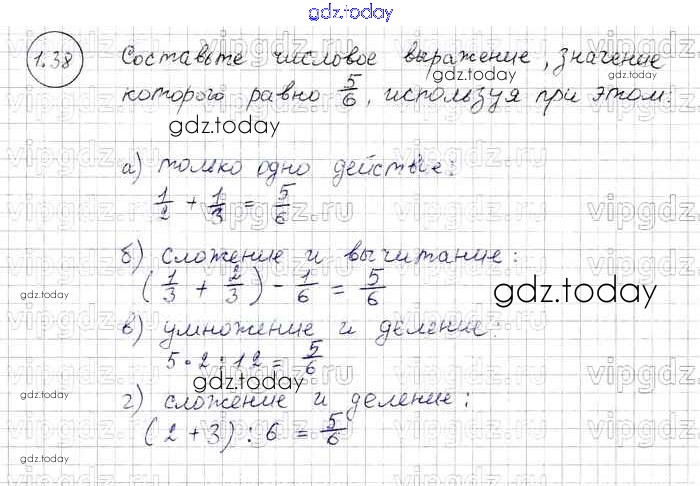 gdz.today
1.38 Составьте числовое выражение, значение
gdz.today
которого равно 5/6, используя при этом:
gdz.today
а) только одно действие:
1/2 + 1/3 = 5/6
gdz.today
б) сложение и вычитание:
(1/3 + 2/3) - 1/6 = 5/6
gdz.today
gdz.today
в) умножение и деление:
5 · 2 : 12 = 5/6
gdz.today
gdz.today
г) сложение и деление:
(2 + 3) : 6 = 5/6
gdz.today
vipgdz.ru